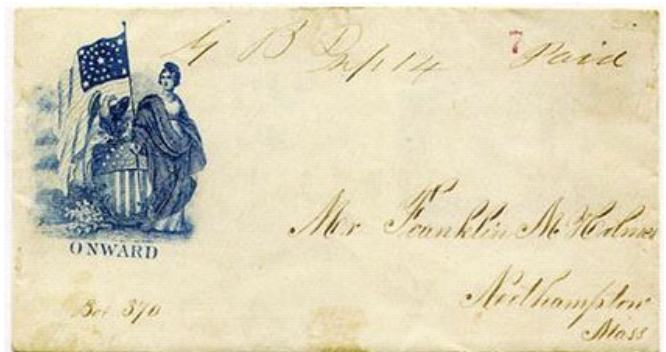 G B Sept 14 7 Paid
ONWARD
Mr Franklin M Holmes
Northampton
Mass
Box 370